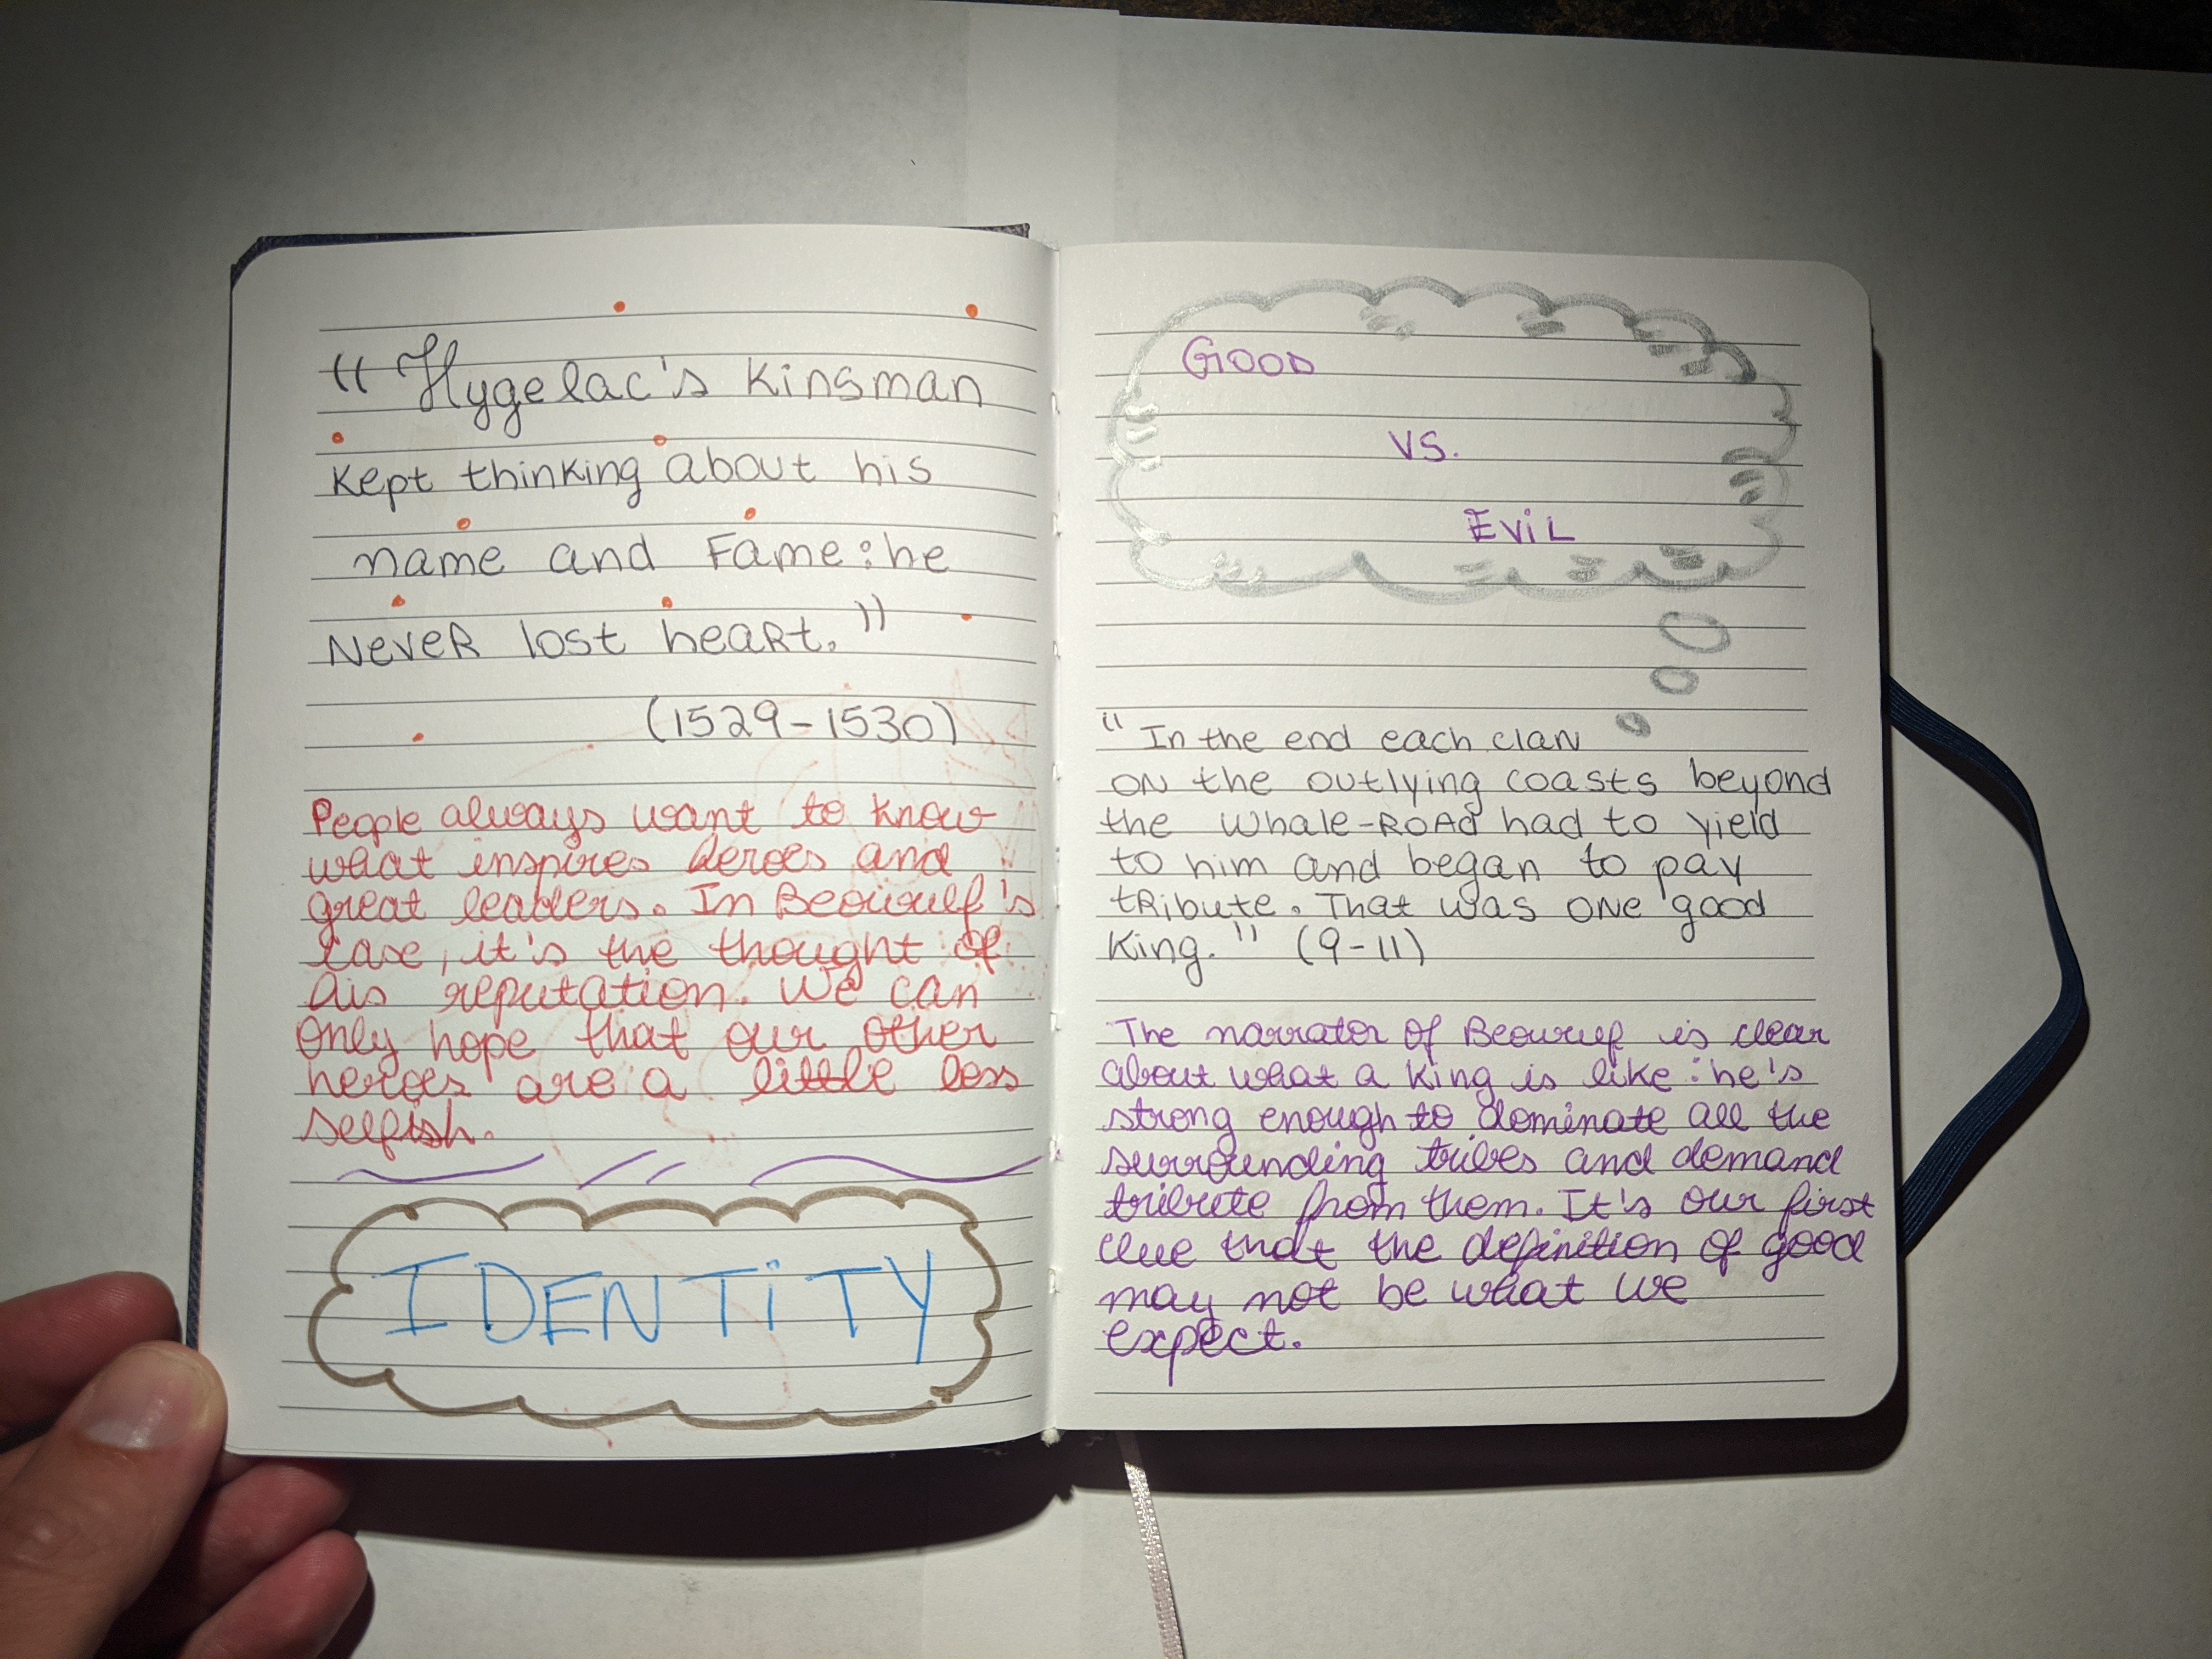 "Hygelac's Kinsman
Kept thinking about his
name and Fame: he
Never lost heart."
(1529-1530)
People always want to know
what inspires heroes and
great leaders. In Beowulf's
case, it's the thought of
his reputation. We can
only hope that our other
heroes are a little less
selfish.
IDENTiTY
GOOD
VS.
EViL
"In the end each clan
on the outlying coasts beyond
the whale-road had to yield
to him and began to pay
tribute. That was one good
King." (9-11)
The narrator of Beowulf is clear
about what a King is like: he's
strong enough to dominate all the
surrounding tribes and demand
tribute from them. It's our first
clue that the definition of good
may not be what we
expect.